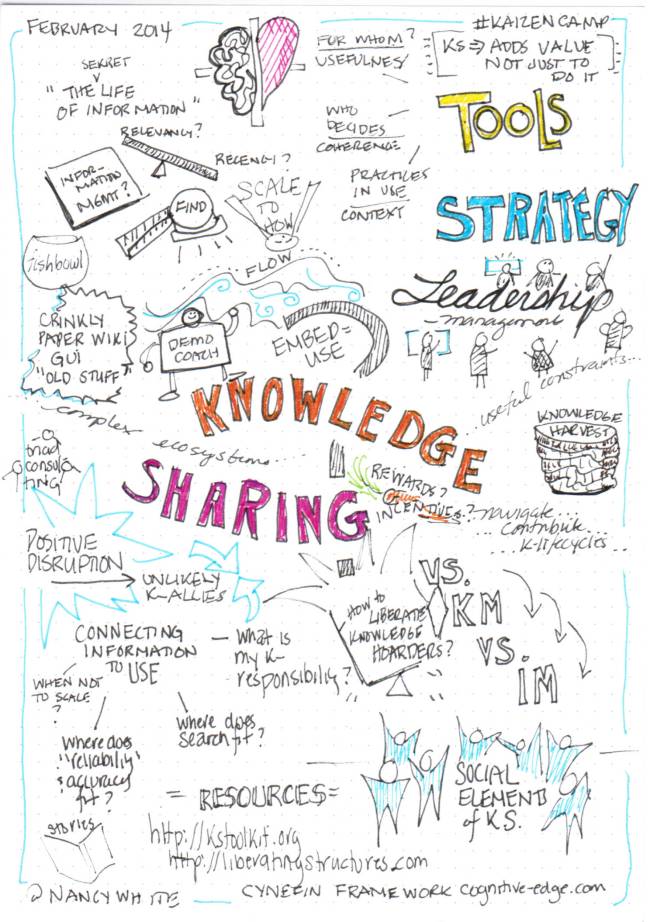 FEBRUARY 2014
#KAIZENCAMP
KS ⇒ ADDS VALUE
NOT JUST TO
DO IT
SEKRET
"THE LIFE
OF INFORMATION"
FOR WHOM?
USEFULNESS
WHO
DECIDES
COHERENCE
PRACTICES
IN USE
CONTEXT
TOOLS
STRATEGY
RELEVANCY?
RECENCY?
INFOR-
MATION
MGMT?
FIND
SCALE
TO
HOW
FLOW
fishbowl
Leadership
management
CRINKLY
PAPER WIKI
GUI
"OLD STUFF"
DEMO
COACH
EMBED=
USE
useful constraints...
KNOWLEDGE
SHARING
...complex
ecosystems...
KNOWLEDGE
HARVEST
triad
consul
ting
REWARDS?
INCENTIVES?
navigate...
contribute
K-lifecycles...
POSITIVE
DISRUPTION
UNLIKELY
K-ALLIES
HOW TO
LIBERATE
KNOWLEDGE
HOARDERS?
VS.
KM
VS.
IM
CONNECTING
INFORMATION
TO USE
What is
my K-
responsibility?
WHEN NOT
TO SCALE
?
where does
search fit?
Where does
"reliability"
& accuracy
fit?
STORIES
SOCIAL
ELEMENT
of KS.
= RESOURCES =
http://kstoolkit.org
http://liberatingstructures.com
@NANCYWHITE
CYNEFIN FRAMEWORK cognitive-edge.com